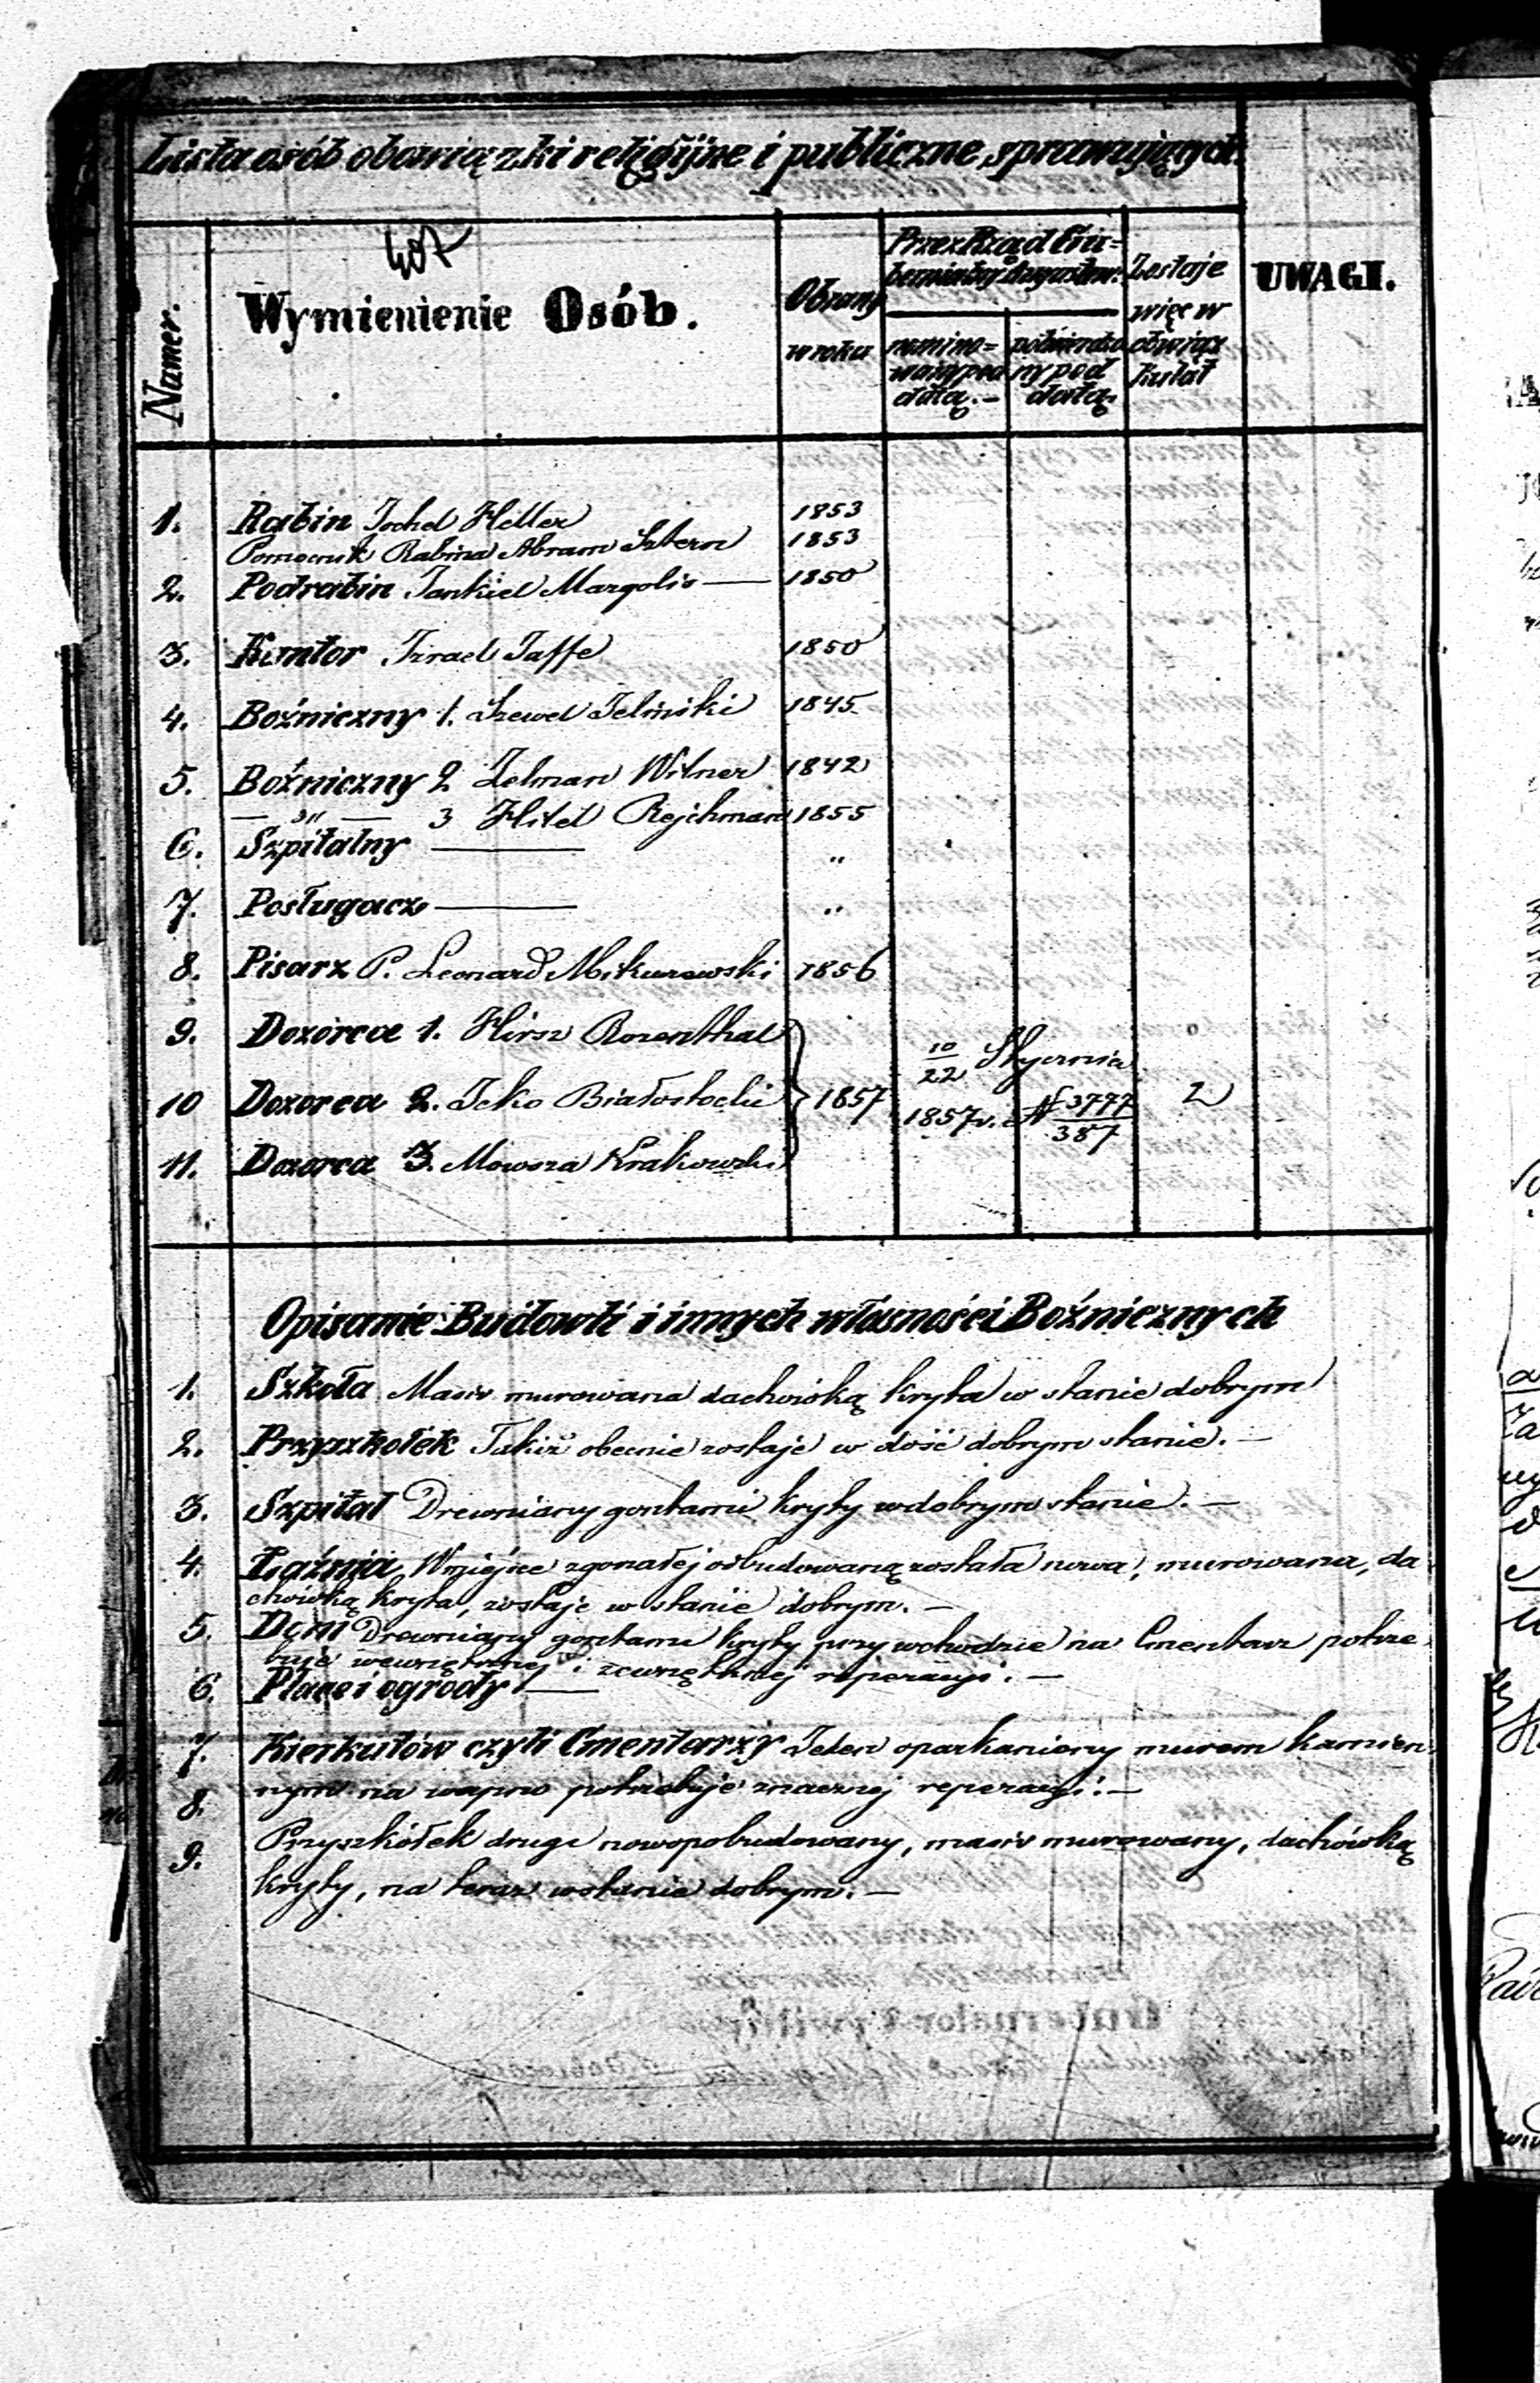 Lista osób obowiązki religijne i publiczne sprawujących.
407
Numer.
Wymienienie Osób.
Obrany w roku
Przez Rząd Gubernialny Augustow:
nominowany pod datą.-
potwierdzony pod datą.
Zostaje więc w obowiązku lat
UWAGI.
1. Rabin Jochel Heller 1853
Pomocnik Rabina Abram Sztern 1853
2. Podrabin Jankiel Margolis — 1850
3. Kantor Izrael Jaffe 1850
4. Boźniczny 1. Szewel Jeliński 1845
5. Boźniczny 2 Zelman Wilner 1842
— „ — 3 Hilel Rejchman 1855
6. Szpitalny — „
7. Posługacz — „
8. Pisarz P. Leonard Mikuszewski 1856
9. Dozorca 1. Hirsz Rozenthal
10 Dozorca 2. Icko Białostocki 1857 10/22 Stycznia 1857 r. № 3777/387 2
11. Dozorca 3. Mowsza Krakowski
Opisanie Budowli i innych własności Boźnicznych
1. Szkoła Masiv murowana dachówką kryta w stanie dobrym
2. Przyszkołek Takiż obecnie zostaje w dość dobrym stanie. —
3. Szpital Drewniany gontami kryty w dobrym stanie. —
4. Łaźnia W miejsce zgorzałej odbudowaną została nowa, murowana, da
chówką kryta, zostaje w stanie dobrym. —
5. Dom Drewniany gontami kryty przy wchodzie na Cmentarz potrze
buje wewnętrznej i zewnętrznej reperacyi. —
6. Place i ogrody —
7. Kierkutów czyli Cmentarzy Jeden oparkaniony murem kamien
8. nym na wapno potrzebuje znacznej reperacyi. —
9. Przyszkółek drugi nowopobudowany, masiv murowany, dachówką
kryty, na teraz w stanie dobrym. —